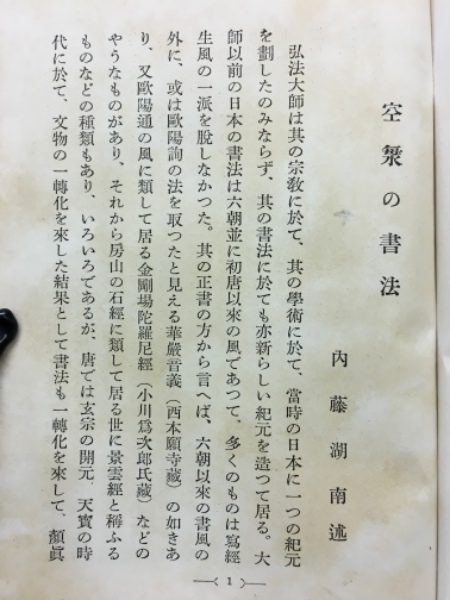 空海の書法
內藤湖南述
弘法大師は其の宗敎に於て、其の學術に於て、當時の日本に一つの紀元
を劃したのみならず、其の書法に於ても亦新らしい紀元を造つて居る。大
師以前の日本の書法は六朝並に初唐以來の風であつて、多くのものは寫經
生風の一派を脫しなかつた。其の正書の方から言へば、六朝以來の書風の
外に、或は歐陽詢の法を取つたと見える華嚴音義（西本願寺藏）の如きあ
り、又歐陽通の風に類して居る金剛場陀羅尼經（小川爲次郞氏藏）などの
やうなものがあり、それから房山の石經に類して居る世に景雲經と稱ふる
ものなどの種類もあり、いろいろであるが、唐では玄宗の開元、天寶の時
代に於て、文物の一轉化を來した結果として書法も一轉化を來して、顏眞
1